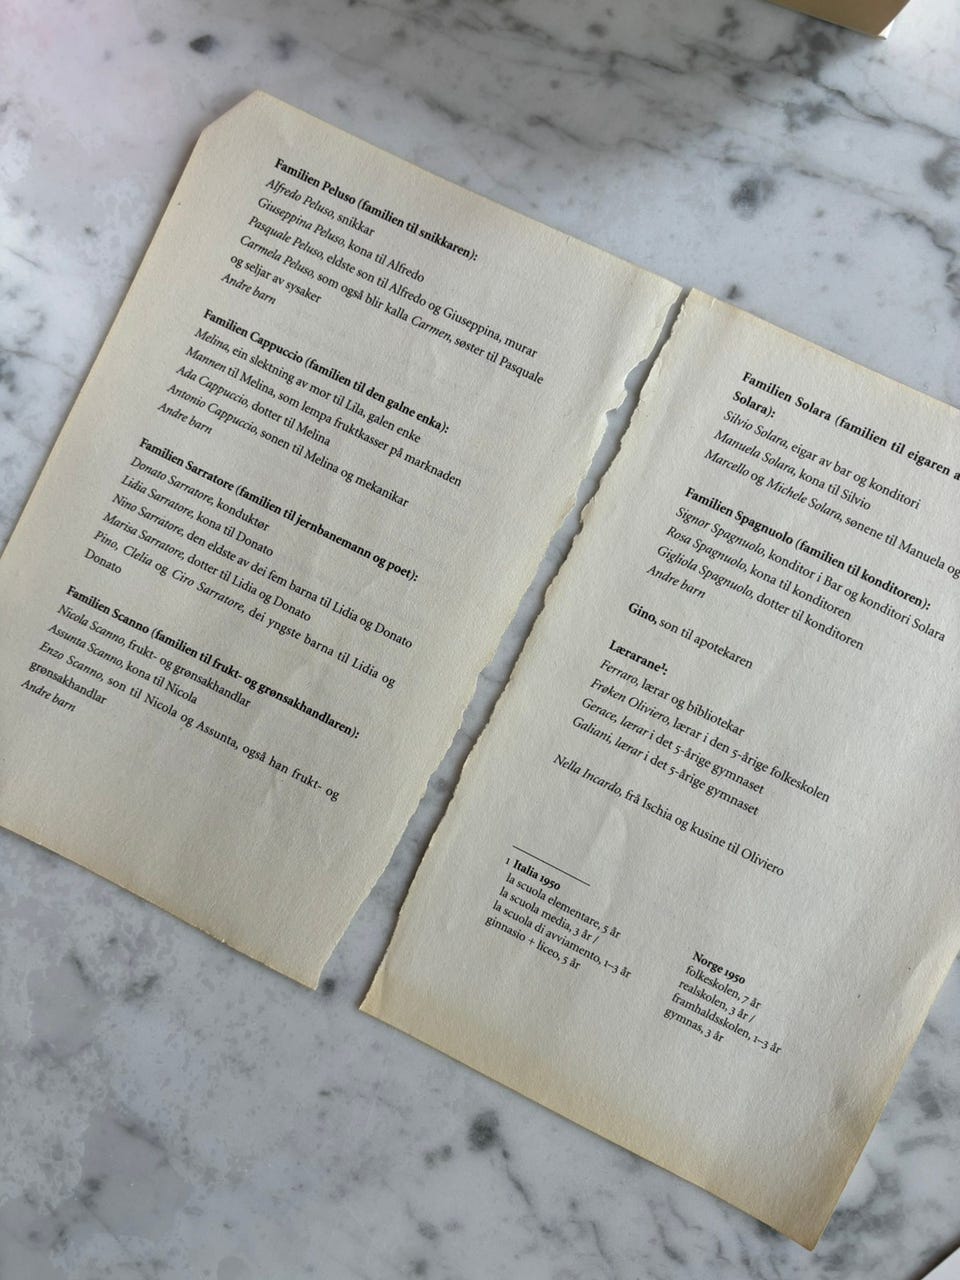 Familien Peluso (familien til snikkaren):
Alfredo Peluso, snikkar
Giuseppina Peluso, kona til Alfredo
Pasquale Peluso, eldste son til Alfredo og Giuseppina, murar
Carmela Peluso, som også blir kalla Carmen, søster til Pasquale
og seljar av sysaker
Andre barn
Familien Cappuccio (familien til den galne enka):
Melina, ein slektning av mor til Lila, galen enke
Mannen til Melina, som lempa fruktkasser på marknaden
Ada Cappuccio, dotter til Melina
Antonio Cappuccio, sonen til Melina og mekanikar
Andre barn
Familien Sarratore (familien til jernbanemann og poet):
Donato Sarratore, konduktør
Lidia Sarratore, kona til Donato
Nino Sarratore, den eldste av dei fem barna til Lidia og Donato
Marisa Sarratore, dotter til Lidia og Donato
Pino, Clelia og Ciro Sarratore, dei yngste barna til Lidia og
Donato
Familien Scanno (familien til frukt- og grønsakhandlaren):
Nicola Scanno, frukt- og grønsakhandlar
Assunta Scanno, kona til Nicola
Enzo Scanno, son til Nicola og Assunta, også han frukt- og
grønsakhandlar
Andre barn
Familien Solara (familien til eigaren a
Solara):
Silvio Solara, eigar av bar og konditori
Manuela Solara, kona til Silvio
Marcello og Michele Solara, sønene til Manuela og
Familien Spagnuolo (familien til konditoren):
Signor Spagnuolo, konditor i Bar og konditori Solara
Rosa Spagnuolo, kona til konditoren
Gigliola Spagnuolo, dotter til konditoren
Andre barn
Gino, son til apotekaren
Lærarane¹:
Ferraro, lærar og bibliotekar
Frøken Oliviero, lærar i den 5-årige folkeskolen
Gerace, lærar i det 5-årige gymnaset
Galiani, lærar i det 5-årige gymnaset
Nella Incardo, frå Ischia og kusine til Oliviero
1 Italia 1950
la scuola elementare, 5 år
la scuola media, 3 år /
la scuola di avviamento, 1–3 år
ginnasio + liceo, 5 år
Norge 1950
folkeskolen, 7 år
realskolen, 3 år /
framhaldsskolen, 1–3 år
gymnas, 3 år